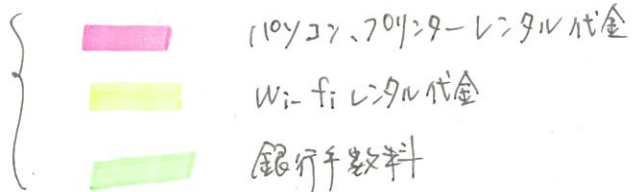 パソコン、プリンターレンタル代金
Wi-fiレンタル代金
銀行手数料